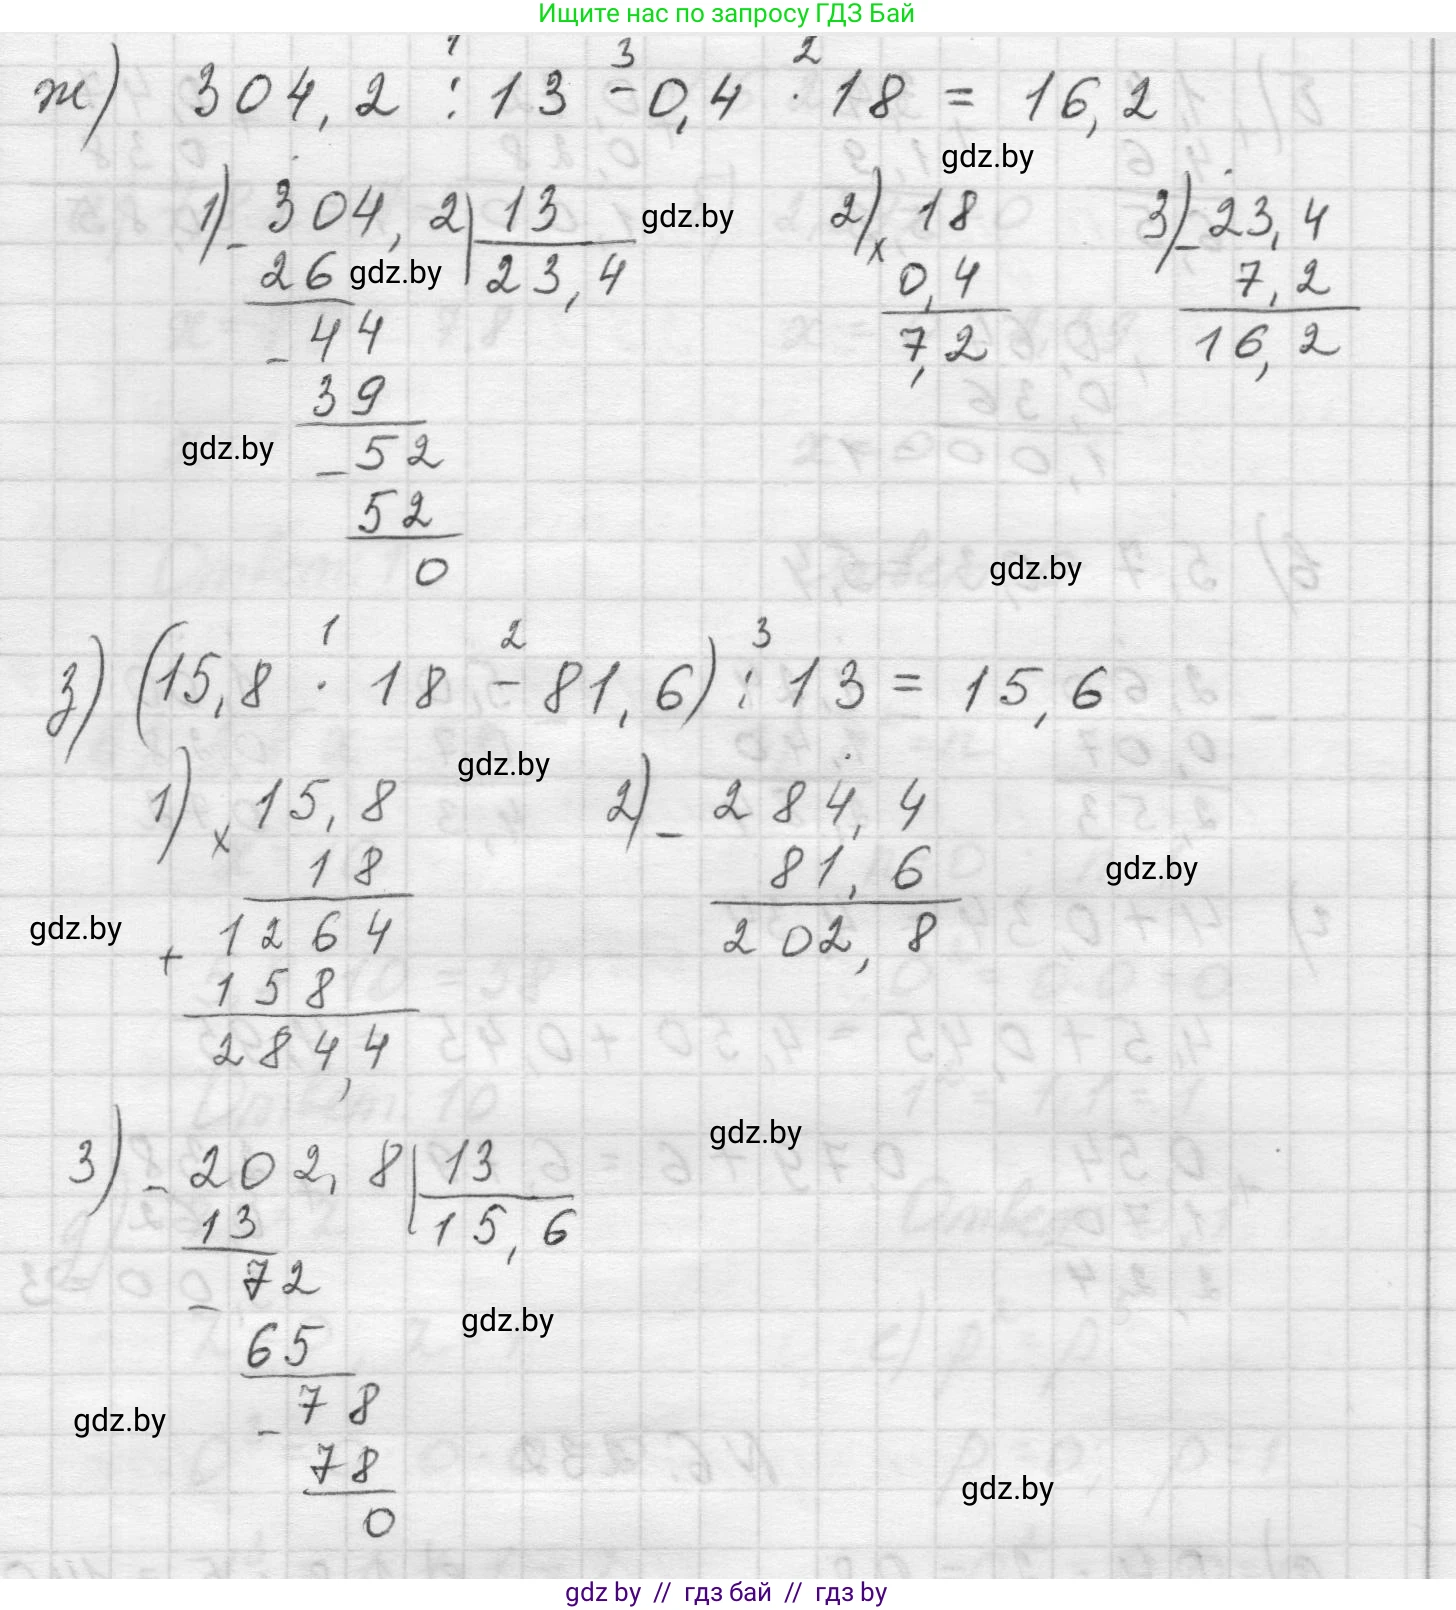 Ищите нас по запросу ГДЗ Бай
1 3 2
ж) 304,2 : 13 - 0,4 · 18 = 16,2
gdz.by
1) - 304,2 | 13 gdz.by 2) x 18 3) - 23,4
26 gdz.by 23,4 0,4 7,2
- 44 7,2 16,2
39
gdz.by - 52
52
0 gdz.by
1 2 3
з) (15,8 · 18 - 81,6) : 13 = 15,6
gdz.by
1) x 15,8 2) - 284,4
18 81,6 gdz.by
gdz.by + 1264 202,8
158
284,4
gdz.by
3) - 202,8 | 13
13 15,6
- 72
gdz.by
65
gdz.by - 78
78 gdz.by
0
gdz by // гдз бай // гдз by